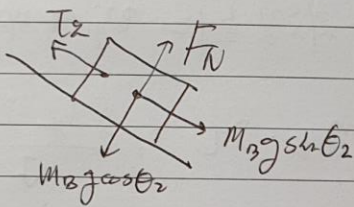 T₂
F_N
m_B g sin θ₂
m_B g cos θ₂